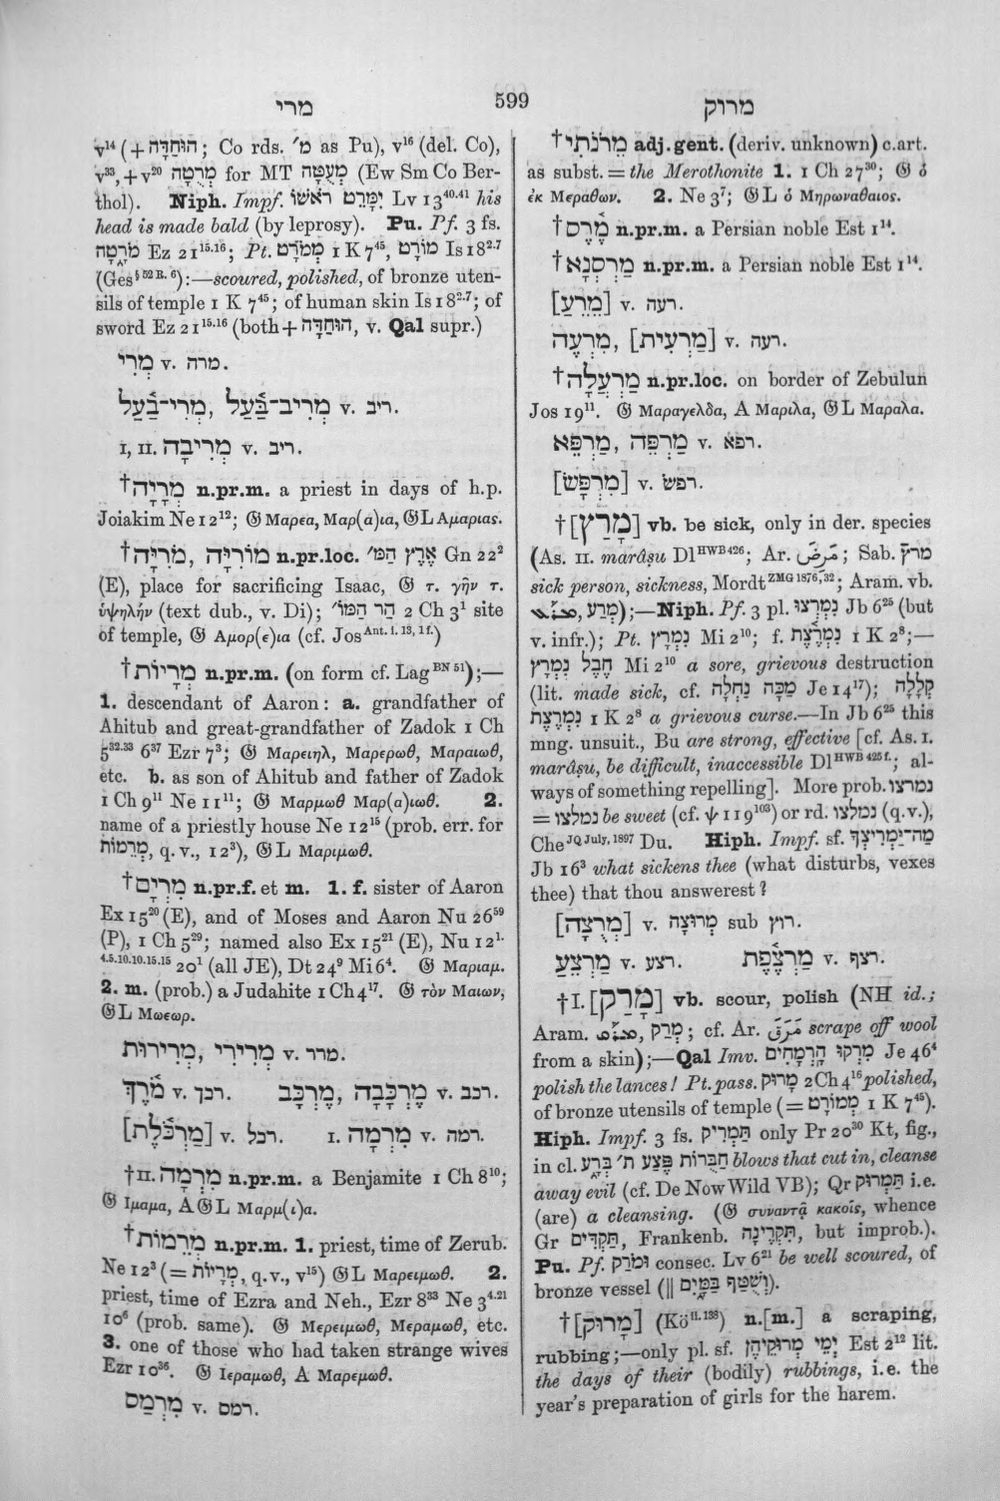 מרי
599
מרוק
v¹⁴ (+ הוּחַדָּה; Co rds. מ׳ as Pu), v¹⁶ (del. Co),
v³³, + v²⁰ מְרֻטָה for MT מְעֻטָּה (Ew Sm Co Ber-
thol). Niph. Impf. יִמָּרֵט רֹאשׁוֹ Lv 13⁴⁰·⁴¹ his
head is made bald (by leprosy). Pu. Pf. 3 fs.
מֹרָטָּה Ez 21¹⁵·¹⁶; Pt. מְמֹרָט 1 K 7⁴⁵, מוֹרָט Is 18²·⁷
(Ges§ 52 R. 6):—scoured, polished, of bronze uten-
sils of temple 1 K 7⁴⁵; of human skin Is 18²·⁷; of
sword Ez 21¹⁵·¹⁶ (both + הוּחַדָּה, v. Qal supr.)
מְרִי v. מרה.
מְרִיב־בַּ֫עַל, מְרִי־בַ֫עַל v. ריב.
I, II. מְרִיבָה v. ריב.
†מְרָיָה n.pr.m. a priest in days of h.p.
Joiakim Ne 12¹²; 𝔊 Μαρεα, Μαρ(α)ια, 𝔊L Αμαριας.
†מֹרִיָּה, מוֹרִיָּה n.pr.loc. אֶרֶץ הַמּ׳ Gn 22²
(E), place for sacrificing Isaac, 𝔊 τ. γῆν τ.
ὑψηλήν (text dub., v. Di); הַר הַמּוֹ׳ 2 Ch 3¹ site
of temple, 𝔊 Αμορ(ε)ια (cf. Jos Ant. i. 13, 1 f.)
†מְרָיוֹת n.pr.m. (on form cf. Lag BN 51);—
1. descendant of Aaron: a. grandfather of
Ahitub and great-grandfather of Zadok 1 Ch
5³²·³³ 6³⁷ Ezr 7³; 𝔊 Μαρειηλ, Μαρερωθ, Μαραιωθ,
etc. b. as son of Ahitub and father of Zadok
1 Ch 9¹¹ Ne 11¹¹; 𝔊 Μαρμωθ Μαρ(α)ιωθ. 2.
name of a priestly house Ne 12¹⁵ (prob. err. for
מְרֵמוֹת, q. v., 12³), 𝔊L Μαριμωθ.
†מִרְיָם n.pr.f. et m. 1. f. sister of Aaron
Ex 15²⁰ (E), and of Moses and Aaron Nu 26⁵⁹
(P), 1 Ch 5²⁹; named also Ex 15²¹ (E), Nu 12¹·
⁴·⁵·¹⁰·¹⁰·¹⁵·¹⁵ 20¹ (all JE), Dt 24⁹ Mi 6⁴. 𝔊 Μαριαμ.
2. m. (prob.) a Judahite 1 Ch 4¹⁷. 𝔊 τὸν Μαιων,
𝔊L Μωεωρ.
מְרִירִי, מְרִירוּת v. מרר.
מֹ֫רֶךְ v. רכך. מֶרְכָּבָה, מֶרְכָּב v. רכב.
[מַרְכֹּ֫לֶת] v. רכל. I. מִרְמָה v. רמה.
†II. מִרְמָה n.pr.m. a Benjamite 1 Ch 8¹⁰;
𝔊 Ιμαμα, A 𝔊L Μαρμ(ι)α.
†מְרֵמוֹת n.pr.m. 1. priest, time of Zerub.
Ne 12³ (= מְרָיוֹת, q.v., v¹⁵) 𝔊L Μαρειμωθ. 2.
priest, time of Ezra and Neh., Ezr 8³³ Ne 3⁴·²¹
10⁶ (prob. same). 𝔊 Μερειμωθ, Μεραμωθ, etc.
3. one of those who had taken strange wives
Ezr 10³⁶. 𝔊 Ιεραμωθ, A Μαρεμωθ.
מִרְמַס v. רמס.
†מֵרֹנֹתִי adj.gent. (deriv. unknown) c.art.
as subst. = the Merothonite 1. 1 Ch 27³⁰; 𝔊 ὁ
ἐκ Μεραθων. 2. Ne 3⁷; 𝔊L ὁ Μηρωναθαιος.
†מֶ֫רֶס n.pr.m. a Persian noble Est 1¹⁴.
†מַרְסְנָא n.pr.m. a Persian noble Est 1¹⁴.
[מֵרֵעַ] v. רעה.
מִרְעֶה, [מַרְעִית] v. רעה.
†מַרְעֲלָה n.pr.loc. on border of Zebulun
Jos 19¹¹. 𝔊 Μαραγελδα, A Μαριλα, 𝔊L Μαραλα.
מַרְפֵּא, מַרְפֵּה v. רפא.
[מִרְפָּשׂ] v. רפשׂ.
†[מָרַץ] vb. be sick, only in der. species
(As. II. marâṣu Dl HWB 426; Ar. مَرِضَ; Sab. מרץ̇
sick person, sickness, Mordt ZMG 1876, 32; Aram. vb.
מְרַע, ܡܪܥ);—Niph. Pf. 3 pl. נִמְרְצוּ Jb 6²⁵ (but
v. infr.); Pt. נִמְרָץ Mi 2¹⁰; f. נִמְרֶ֫צֶת 1 K 2⁸;—
חֶבֶל נִמְרָץ Mi 2¹⁰ a sore, grievous destruction
(lit. made sick, cf. מַכָּה נַחְלָה Je 14¹⁷); קְלָלָה
נִמְרֶצֶת 1 K 2⁸ a grievous curse.—In Jb 6²⁵ this
mng. unsuit., Bu are strong, effective [cf. As. I.
marâṣu, be difficult, inaccessible Dl HWB 425 f.; al-
ways of something repelling]. More prob. נמרצו
= נמלצו be sweet (cf. ψ 119¹⁰³) or rd. נמלצו (q.v.),
Che JQ July, 1897 Du. Hiph. Impf. sf. מַה־יַּמְרִיצְךָ
Jb 16³ what sickens thee (what disturbs, vexes
thee) that thou answerest?
[מְרֻצָה] v. מְרוּצָה sub רוץ.
מַרְצֵעַ v. רצע. מַרְצֶ֫פֶת v. רצף.
†I. [מָרַק] vb. scour, polish (NH id.;
Aram. ܡܪܩ, מְרַק; cf. Ar. مَرَقَ scrape off wool
from a skin);—Qal Imv. מִרְקוּ הָרְמָחִים Je 46⁴
polish the lances! Pt. pass. מָרוּק 2 Ch 4¹⁶ polished,
of bronze utensils of temple (= מְמוֹרָט 1 K 7⁴⁵).
Hiph. Impf. 3 fs. תַּמְרִיק only Pr 20³⁰ Kt, fig.,
in cl. חַבֻּרוֹת פֶּצַע תּ׳ בְּרָע blows that cut in, cleanse
away evil (cf. De Now Wild VB); Qr תַּמְרוּק i.e.
(are) a cleansing. (𝔊 συναντᾷ κακοῖς, whence
Gr תַּקְדִּים, Frankenb. תִּקְרֶינָה, but improb.).
Pu. Pf. וּמֹרַק consec. Lv 6²¹ be well scoured, of
bronze vessel (‖ וְשֻׁטַּף בַּמָּיִם).
†[מָרוּק] (Kö ii. 138) n.[m.] a scraping,
rubbing;—only pl. sf. יְמֵי מְרוּקֵיהֶן Est 2¹² lit.
the days of their (bodily) rubbings, i.e. the
year's preparation of girls for the harem.